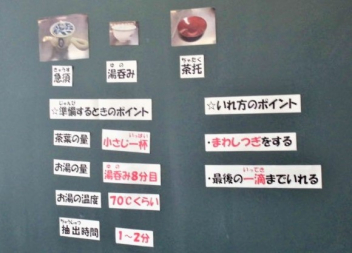 きゅうす
急須
ゆの
湯呑み
ちゃたく
茶托
じゅんび
☆準備するときのポイント
茶葉の量
いっぱい
小さじ一杯
お湯の量
ゆの
湯呑み8分目
お湯の温度
70℃くらい
ちゅうしゅつ
抽出時間
1～2分
☆いれ方のポイント
・まわしつぎをする
いってき
・最後の一滴までいれる